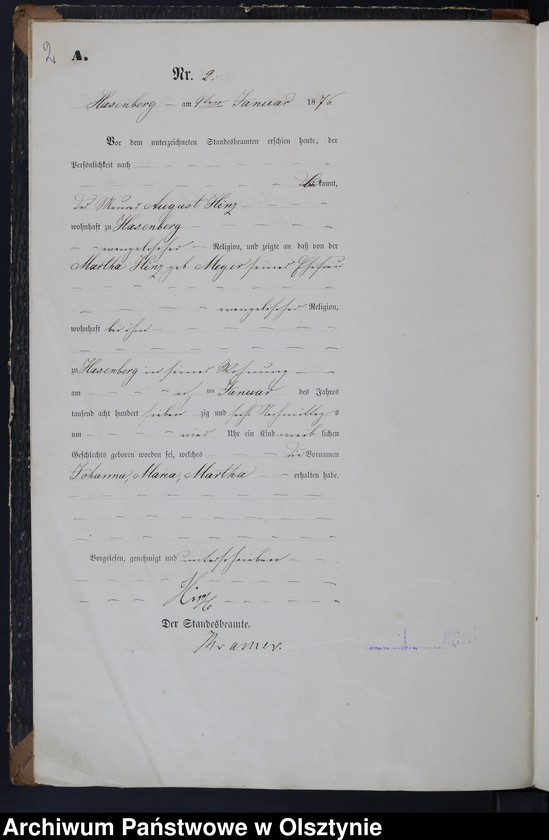 2
A.
Nr. 2.
Hasenberg am 9ten Januar 1876
Vor dem unterzeichneten Standesbeamten erschien heute, der
Persönlichkeit nach
bekannt,
der August Hinz
wohnhaft zu Hasenberg
evangelischer Religion, und zeigte an daß von der
Martha Hinz geb. Meyer seiner Ehefrau
evangelischer Religion,
wohnhaft bei ihm
zu Hasenberg in seiner Wohnung
am ten Januar des Jahres
tausend acht hundert sieben zig und sechs Nachmittags
um Uhr ein Kind weib lichen
Geschlechts geboren worden sei, welches die Vornamen
Johanna, Maria, Martha erhalten habe.
Vorgelesen, genehmigt und unterschrieben
Hinz
Der Standesbeamte.
Kramer.
Archiwum Państwowe w Olsztynie